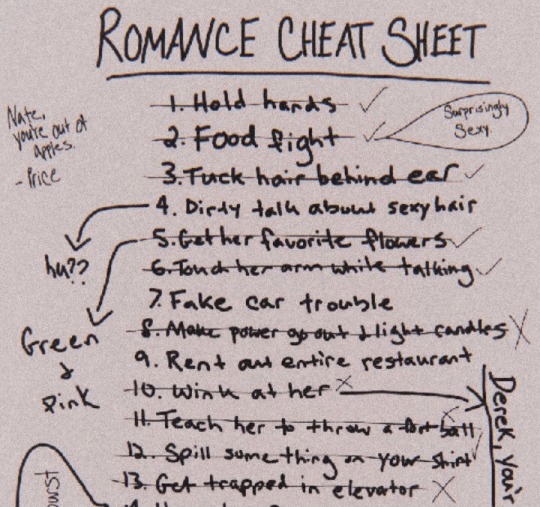 ROMANCE CHEAT SHEET
Nate,
you're out of
apples.
-Price
1. Hold hands
2. Food fight
Surprisingly
Sexy.
3. Tuck hair behind ear
4. Dirty talk about sexy hair
hu??
5. Get her favorite flowers
Green
&
pink
6. Touch her arm while talking
7. Fake car trouble
8. Make power go out & light candles
9. Rent out entire restaurant
10. Wink at her
Derek, you're
11. Teach her to throw a football
12. Spill something on your shirt
13. Get trapped in elevator